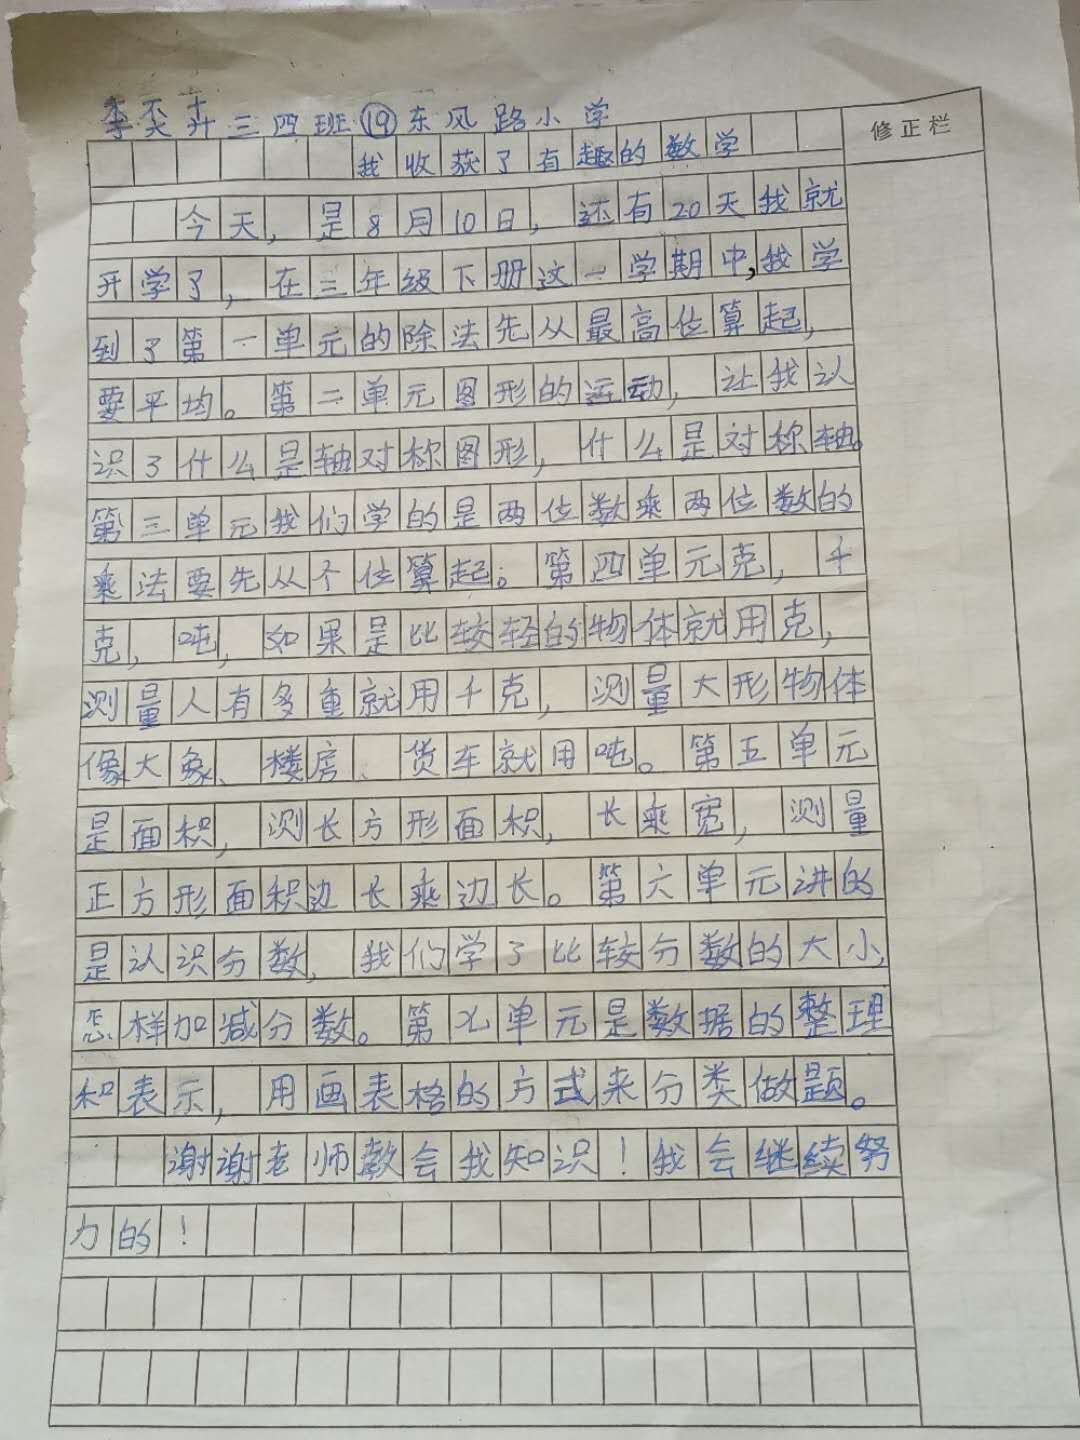 三四班⑲东风路小学
修正栏
我收获了有趣的数学
今天，是8月10日，还有20天我就
开学了，在三年级下册这一学期中，我学
到了第一单元的除法先从最高位算起，
要平均。第二单元图形的运动，让我认
识了什么是轴对称图形，什么是对称轴。
第三单元我们学的是两位数乘两位数的
乘法要先从个位算起。第四单元克，千
克，吨，如果是比较轻的物体就用克，
测量人有多重就用千克，测量大形物体
像大象、楼房、货车就用吨。第五单元
是面积，测长方形面积，长乘宽，测量
正方形面积边长乘边长。第六单元讲的
是认识分数，我们学了比较分数的大小，
怎样加减分数。第七单元是数据的整理
和表示，用画表格的方式来分类做题。
谢谢老师教会我知识！我会继续努
力的！